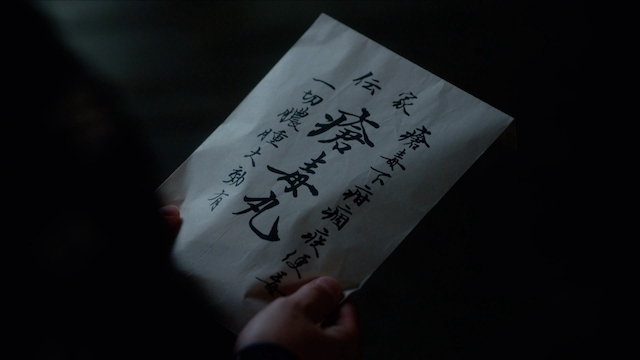 家伝
瘡毒下疳痼疾便毒
瘡毒丸
一切膿腫大効有